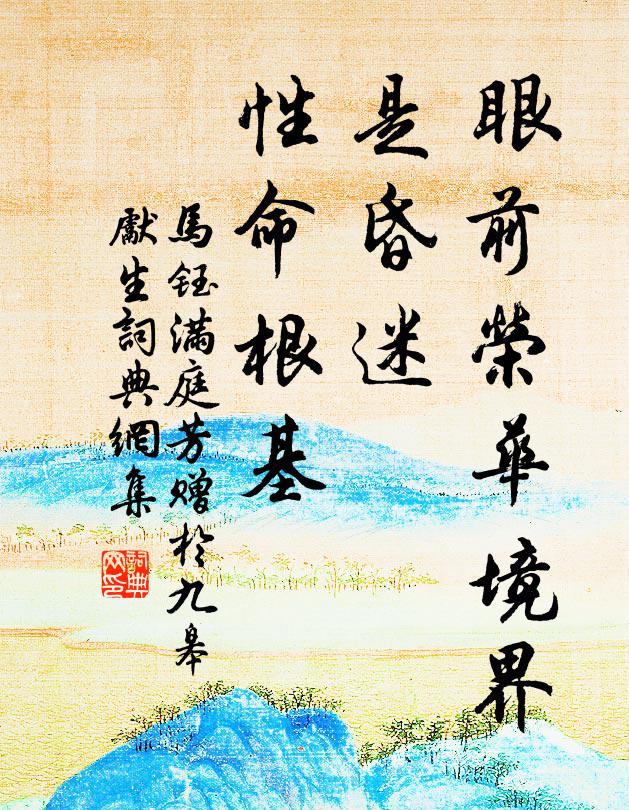 眼前榮華境界
是昏迷
性命根基
馬鈺滿庭芳贈於九皋
獻生詞典網集
詞典
网印